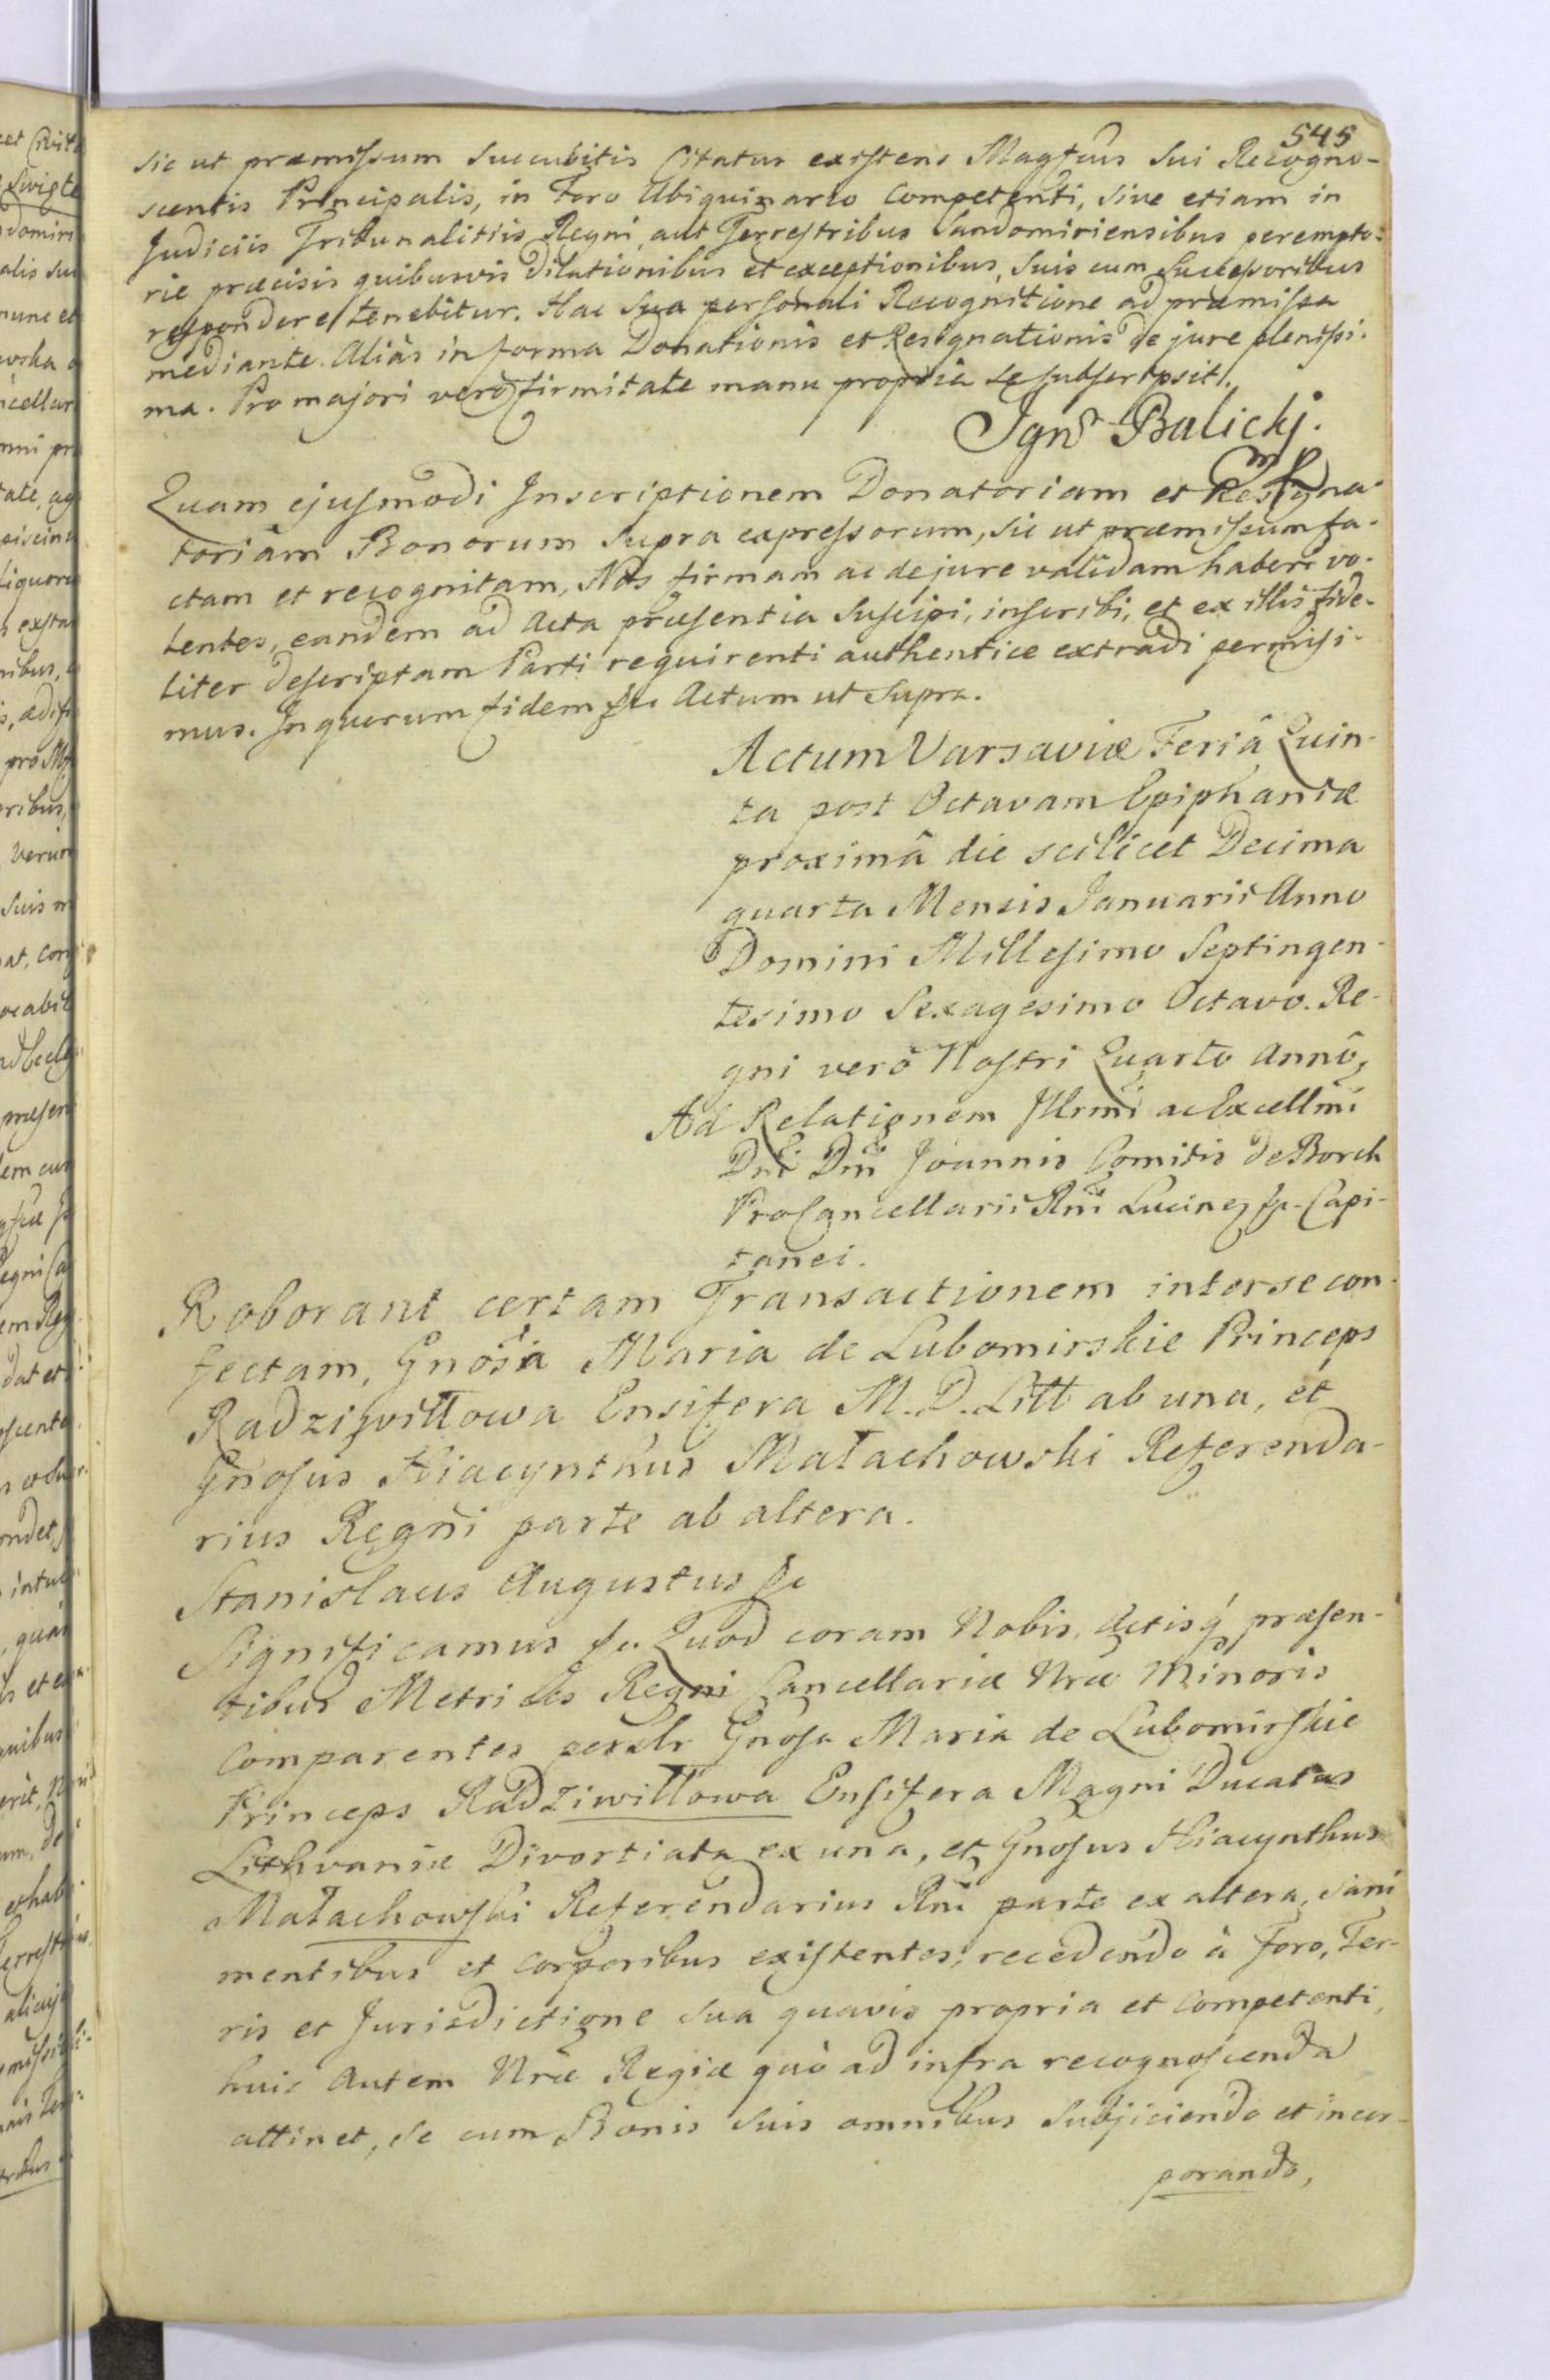 545
sic ut præmissum succubitis Citatus existens Magfcus sui Recogno-
scentis Principalis, in Foro Ubiquinario Competenti, sive etiam in
Judiciis Tribunalitiis Regni, aut Terrestribus Sandomiriensibus perempto-
rie præcisis quibusvis dilationibus et exceptionibus, suis cum Successoribus
respondere tenebitur. Hac Sua personali Recognitione ad præmissa
mediante. Aliàs in forma Donationis et Resignationis de jure plenissi-
ma. Pro majori verò firmitate manu propria se subscripsit.
Ign Balickj.
mp
Quam ejusmodi Inscriptionem Donatoriam et Resigna-
toriam Bonorum supra expressorum, sic ut præmissum fa-
ctam et recognitam, Nos firmam ac de jure validam habere vo-
lentes, eandem ad Acta præsentia suscipi, inscribi, et ex illis fide-
liter descriptam Parti requirenti authentice extradi permisi-
mus. In quorum fidem &c Actum ut supra.
Actum Varsaviæ Feriâ Quin-
ta post Octavam Epiphaniæ
proximâ die scilicet Decima
quarta Mensis Januarii Anno
Domini Millesimo Septingen-
tesimo Sexagesimo Octavo. Re-
gni verò Nostri Quarto Annô,
Ad Relationem Illrmi ac Excellmi
Dni Dni Joannis Comitis de Borch
ProCancellarii Rni Lucinen &c. Capi-
tanei.
Roborant certam Transactionem inter se con-
fectam, Gnosa Maria de Lubomirskie Princeps
Radziwiłłowa Ensifera M. D. Litt ab una, et
Gnosus Hiacynthus Małachowski Referenda-
rius Regni parte ab altera.
Stanislaus Augustus &c
Significamus &c. Quod coram Nobis, Actisq́ præsen-
tibus Metrices Regni Cancellariæ Nræ Minoris
Comparentes persnlr Gnosa Maria de Lubomirskie
Princeps Radziwiłłowa Ensifera Magni Ducatus
Lithvaniæ Divortiata ex una, et Gnosus Hiacynthus
Małachowski Referendarius Rni parte ex altera, sani
mentibus et corporibus existentes, recedendo à foro, Ter-
ris et Jurisdictione sua quavis propria et competenti,
huic autem Nræ Regiæ quò ad infra recognoscenda
attinet, se cum Bonis suis omnibus subjiciendo et incor-
porando,